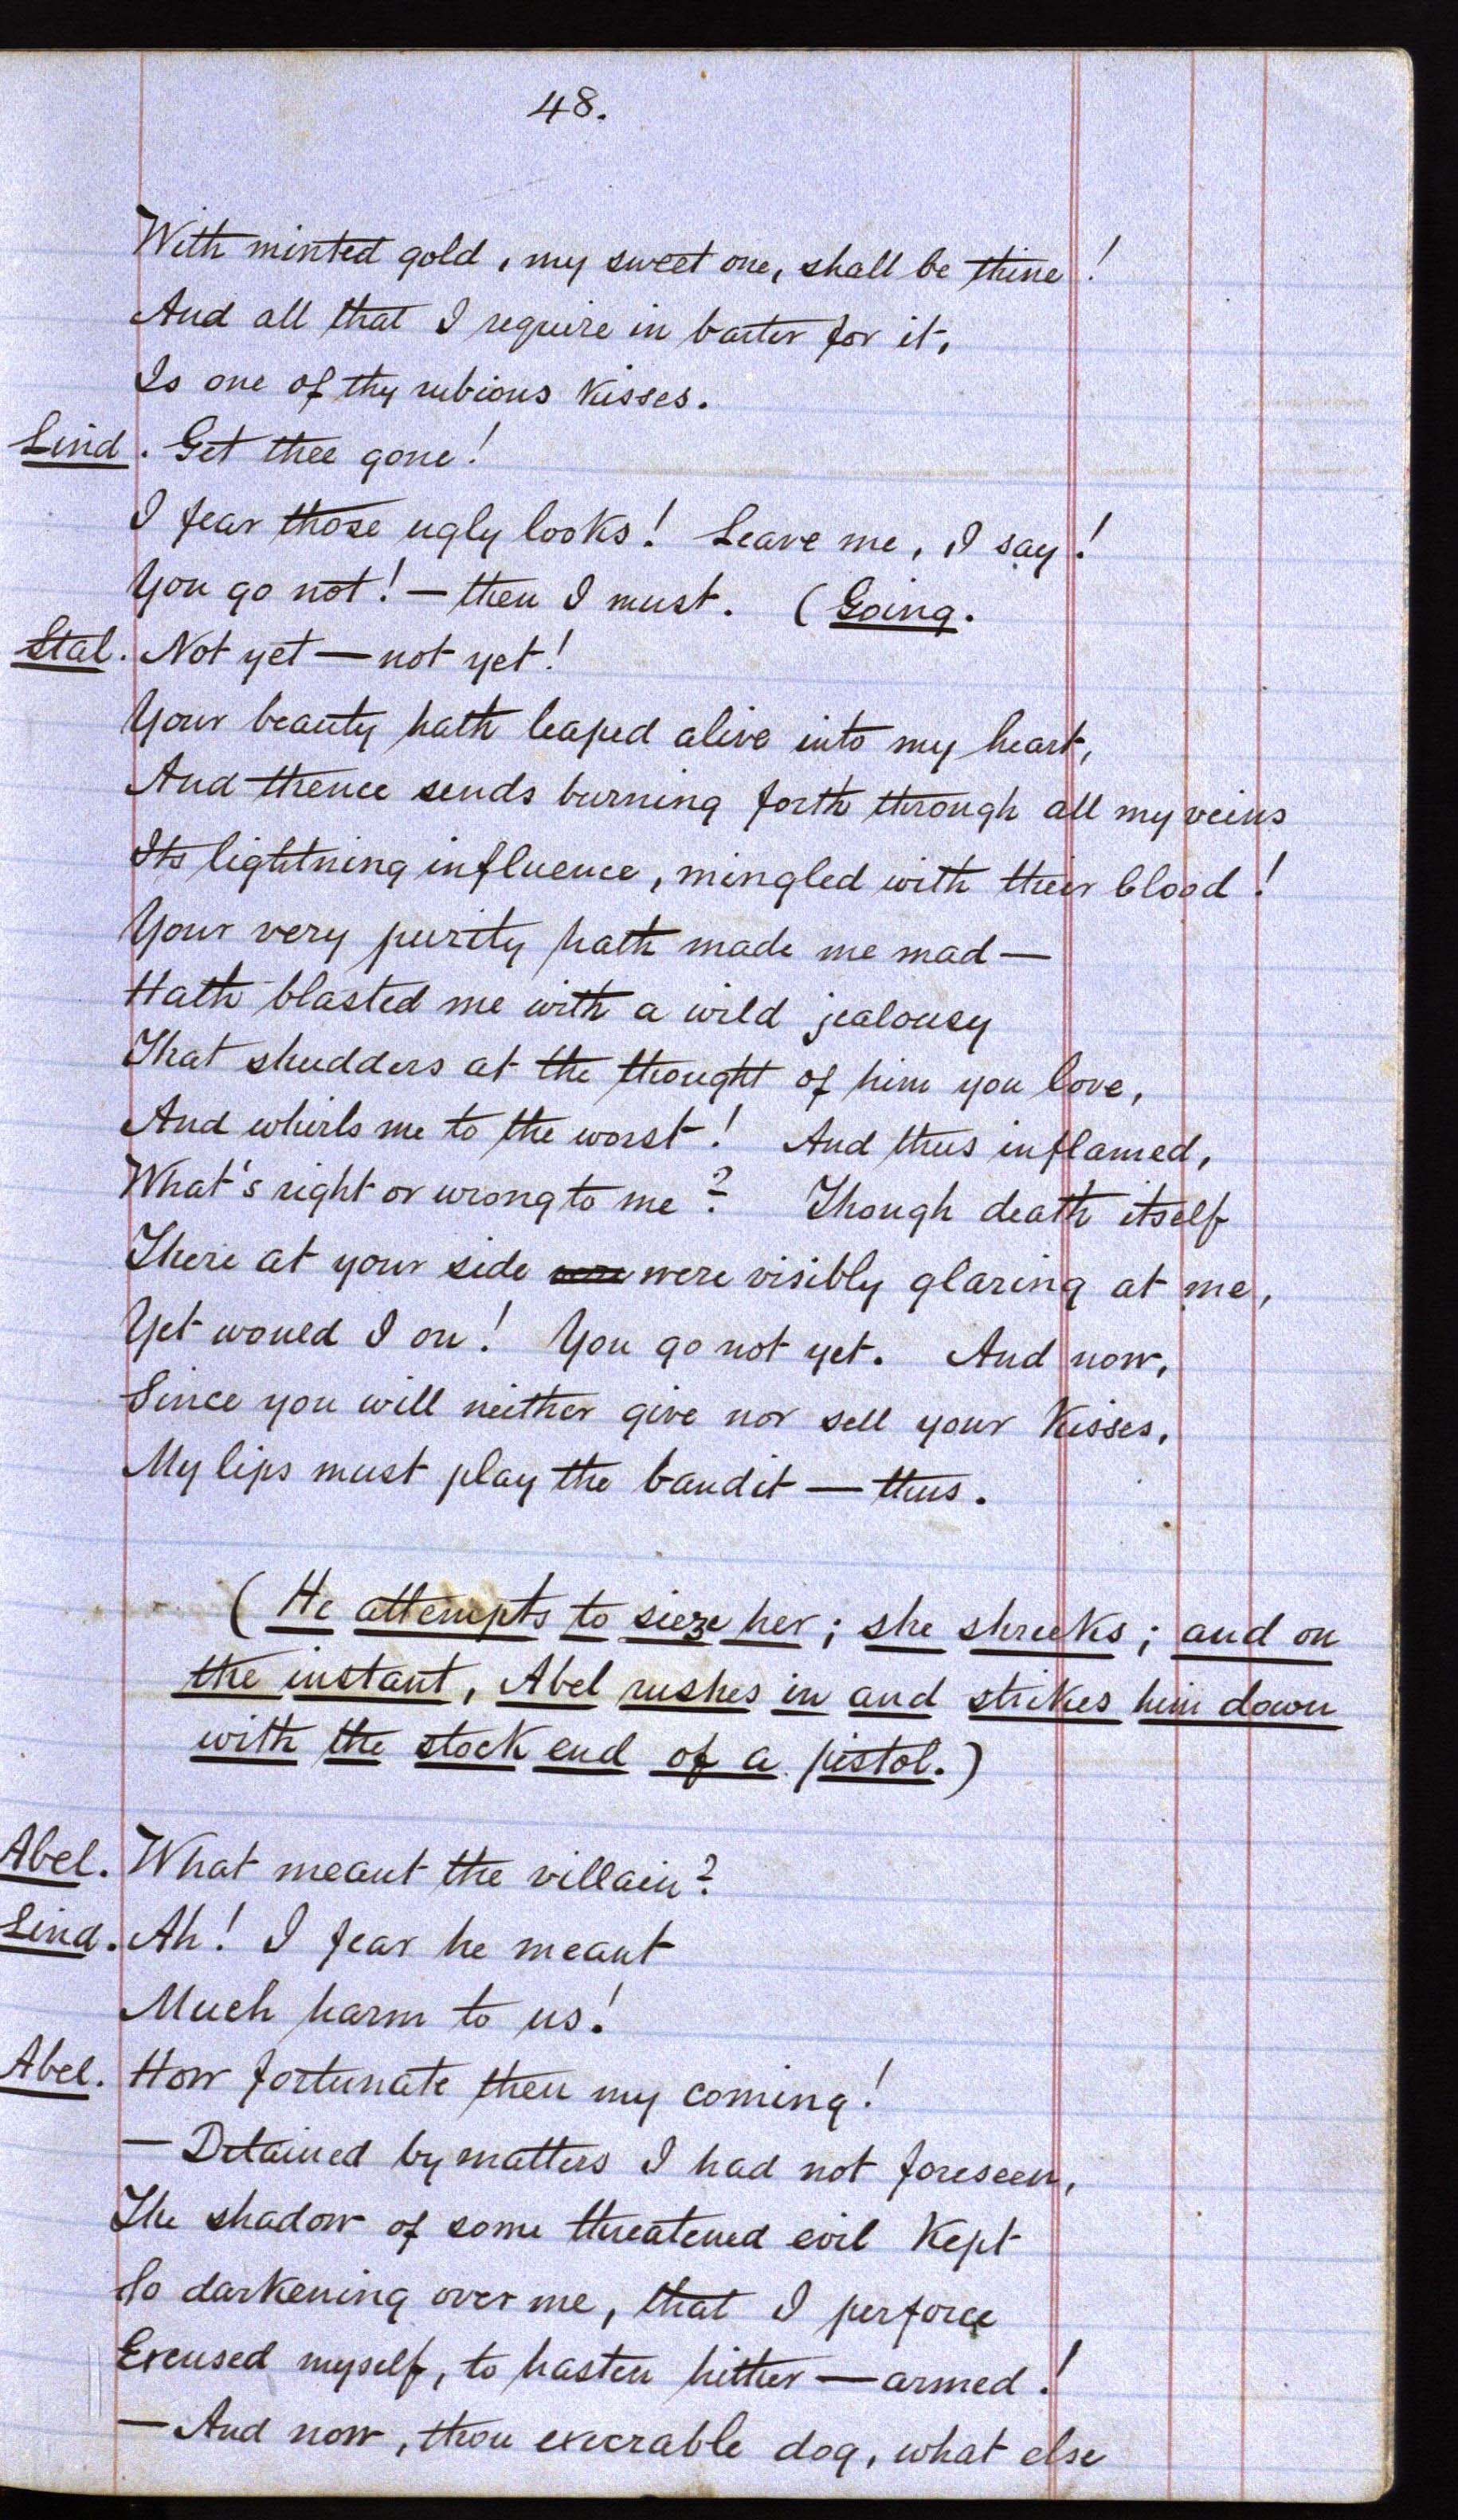 48.
With minted gold, my sweet one, shall be thine!
And all that I require in barter for it,
Is one of thy rubious kisses.
Lind. Get thee gone!
I fear those ugly looks! Leave me, I say!
You go not! — then I must. (Going.
Stal. Not yet — not yet!
Your beauty hath leaped alive into my heart,
And thence sends burning forth through all my veins
Its lightning influence, mingled with their blood!
Your very purity hath made me mad —
Hath blasted me with a wild jealousy
That shudders at the thought of him you love,
And whirls me to the worst! And thus inflamed,
What's right or wrong to me? Though death itself
There at your side were were visibly glaring at me,
Yet would I on! You go not yet. And now,
Since you will neither give nor sell your kisses,
My lips must play the bandit — thus.
(He attempts to sieze her; she shrieks; and on
the instant, Abel rushes in and strikes him down
with the stock end of a pistol.)
Abel. What meant the villain?
Lind. Ah! I fear he meant
Much harm to us!
Abel. How fortunate then my coming!
— Detained by matters I had not foreseen,
The shadow of some threatened evil kept
So darkening over me, that I perforce
Excused myself, to hasten hither — armed!
— And now, thou execrable dog, what else